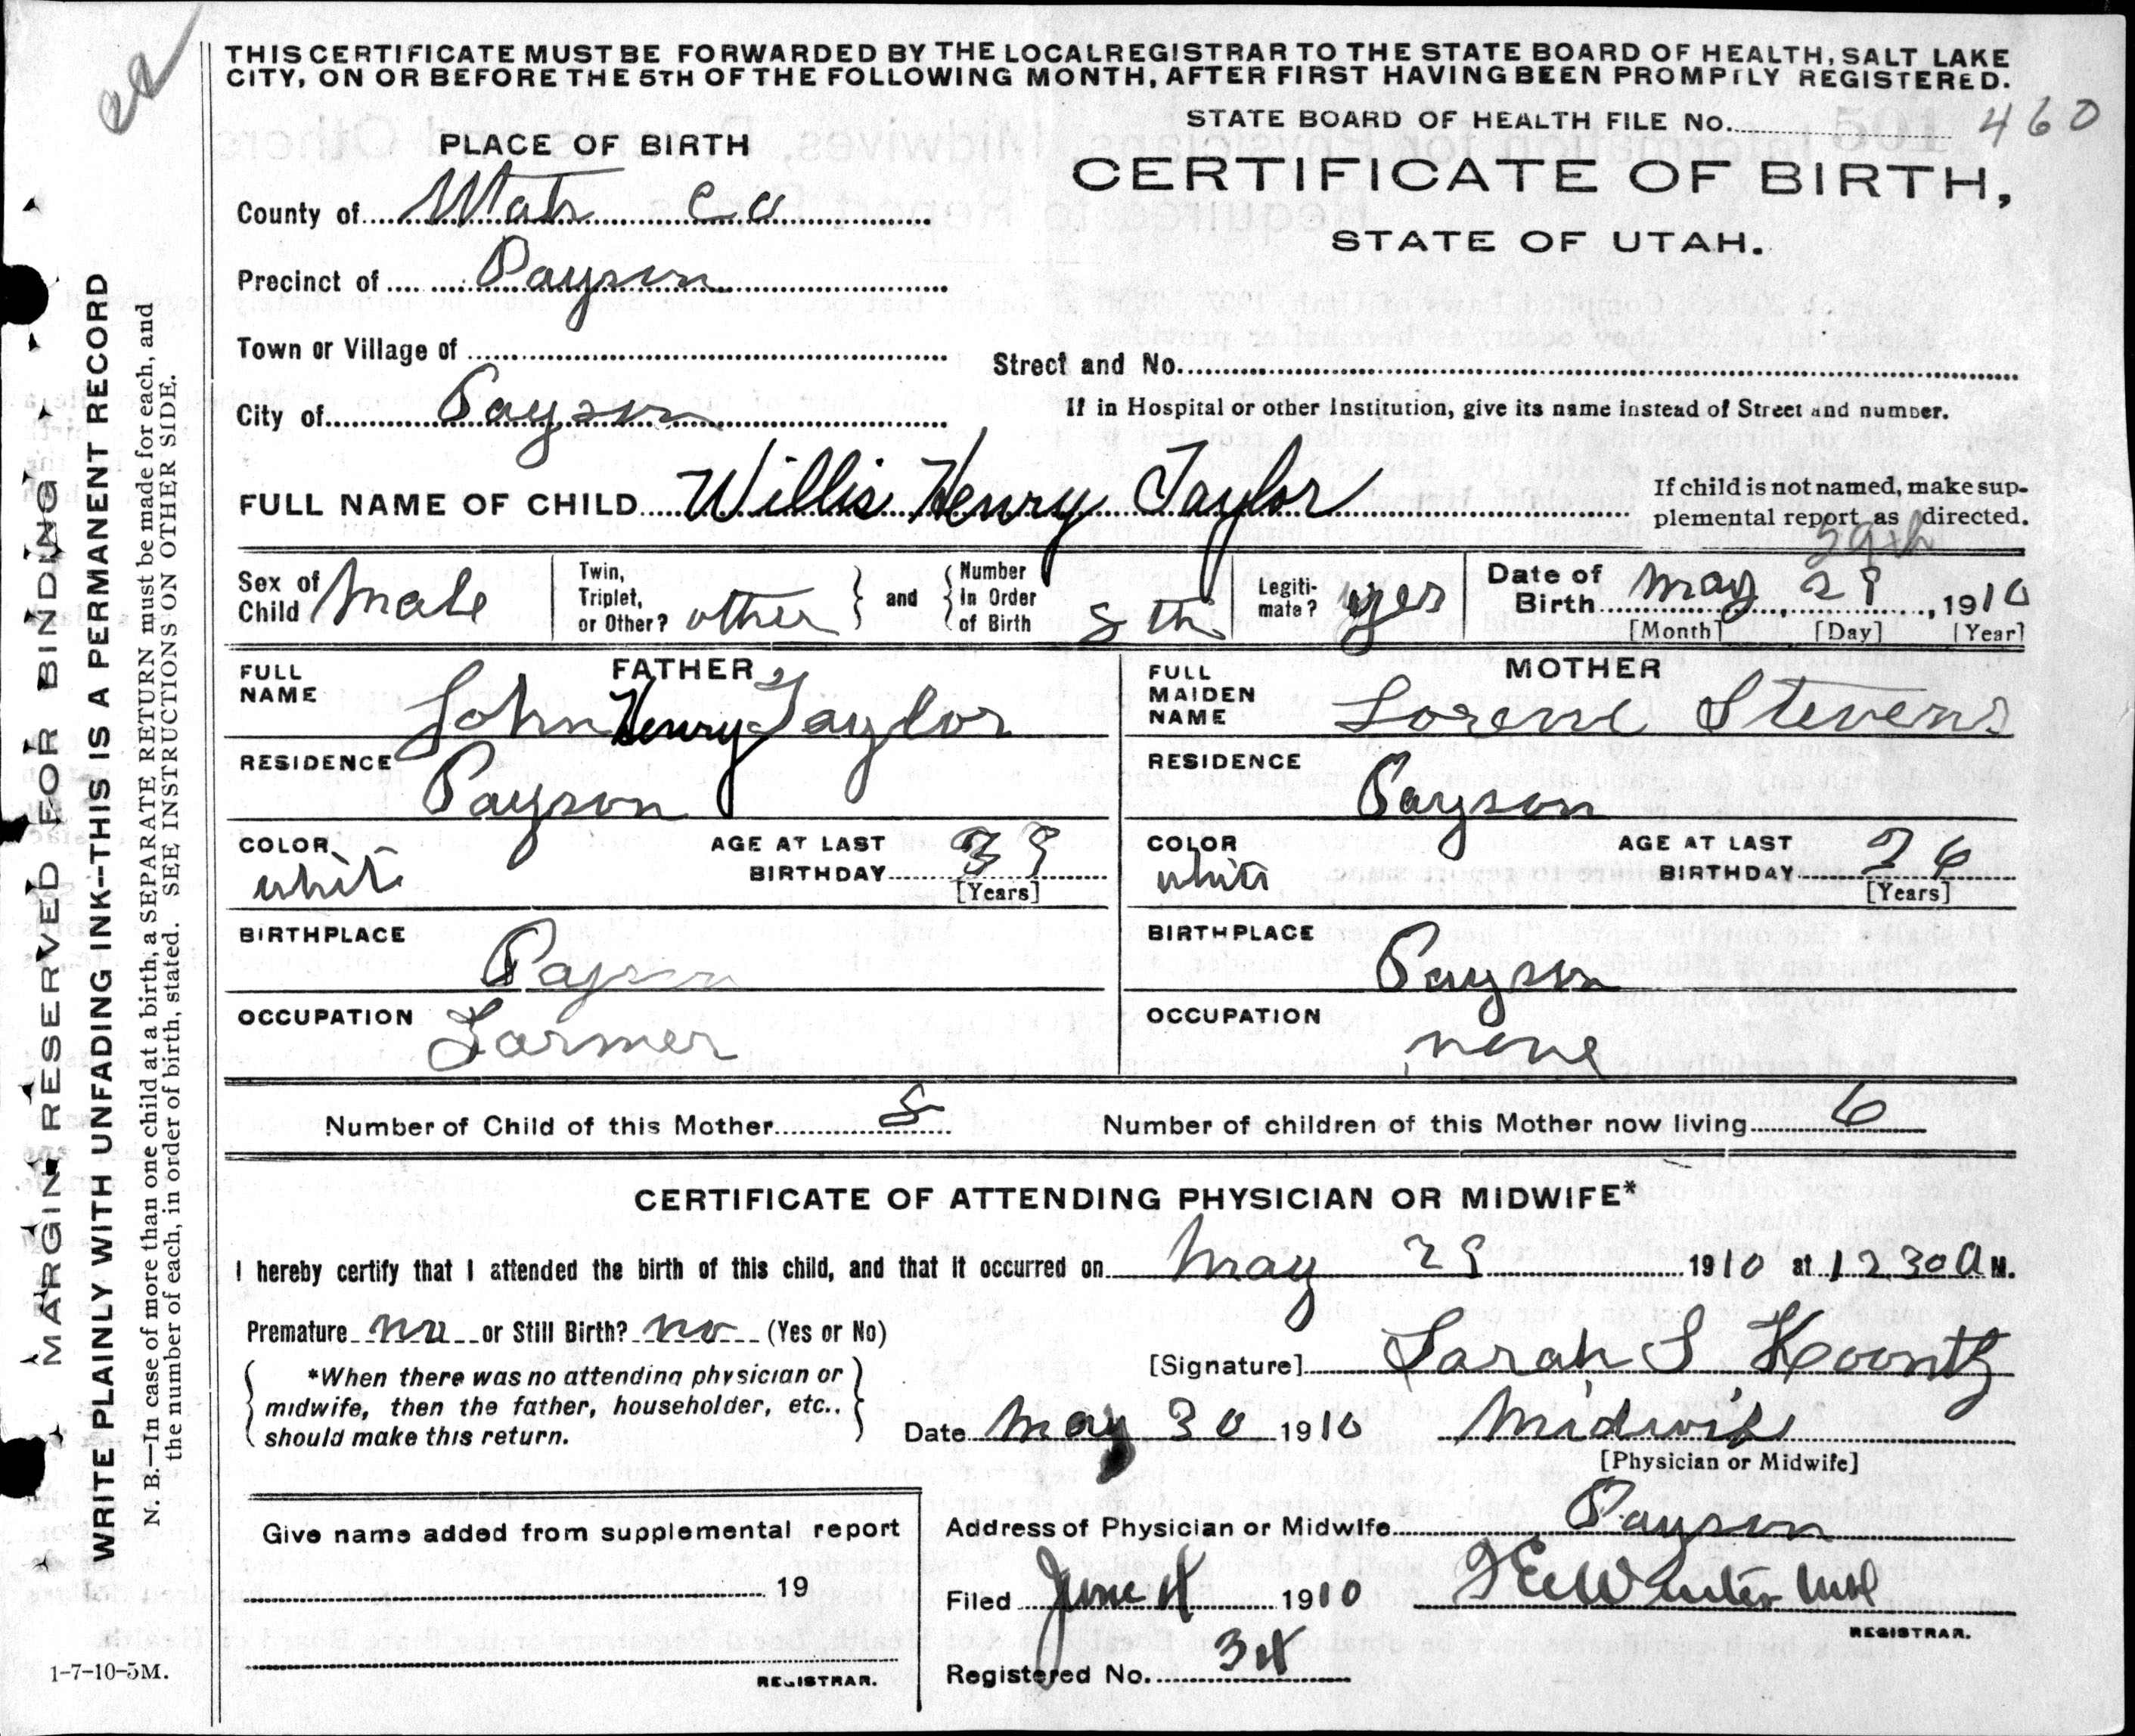 THIS CERTIFICATE MUST BE FORWARDED BY THE LOCAL REGISTRAR TO THE STATE BOARD OF HEALTH, SALT LAKE
CITY, ON OR BEFORE THE 5TH OF THE FOLLOWING MONTH, AFTER FIRST HAVING BEEN PROMPTLY REGISTERED.
STATE BOARD OF HEALTH FILE No. 105 460
PLACE OF BIRTH
CERTIFICATE OF BIRTH,
STATE OF UTAH.
County of Utah Co
Precinct of Payson
Town or Village of
Street and No.
City of Payson
If in Hospital or other Institution, give its name instead of Street and number.
FULL NAME OF CHILD Willis Henry Taylor
If child is not named, make sup-
plemental report as directed.
29th
Sex of Child Male
Twin, Triplet, or Other? other
and
Number In Order of Birth 8th
Legiti-mate? yes
Date of Birth May 29, 1910
[Month] [Day] [Year]
FATHER
FULL NAME John Henry Taylor
RESIDENCE Payson
COLOR white
AGE AT LAST BIRTHDAY 39
[Years]
BIRTHPLACE Payson
OCCUPATION Farmer
MOTHER
FULL MAIDEN NAME Lorene Stevens
RESIDENCE Payson
COLOR white
AGE AT LAST BIRTHDAY
[Years]
BIRTHPLACE Payson
OCCUPATION none
Number of Child of this Mother 8
Number of children of this Mother now living 6
CERTIFICATE OF ATTENDING PHYSICIAN OR MIDWIFE*
I hereby certify that I attended the birth of this child, and that it occurred on May 29 1910 at 12 30 A M.
Premature no or Still Birth? no (Yes or No)
*When there was no attending physician or
midwife, then the father, householder, etc.,
should make this return.
[Signature] Sarah S Koontz
Date May 30 1910
Midwife
[Physician or Midwife]
Give name added from supplemental report
19
REGISTRAR.
Address of Physician or Midwife Payson
Filed June 4 1910
Winter
REGISTRAR.
Registered No. 34
1-7-10-5M.
MARGIN RESERVED FOR BINDING
WRITE PLAINLY WITH UNFADING INK—THIS IS A PERMANENT RECORD
N. B.—In case of more than one child at a birth, a SEPARATE RETURN must be made for each, and
the number of each, in order of birth, stated. SEE INSTRUCTIONS ON OTHER SIDE.